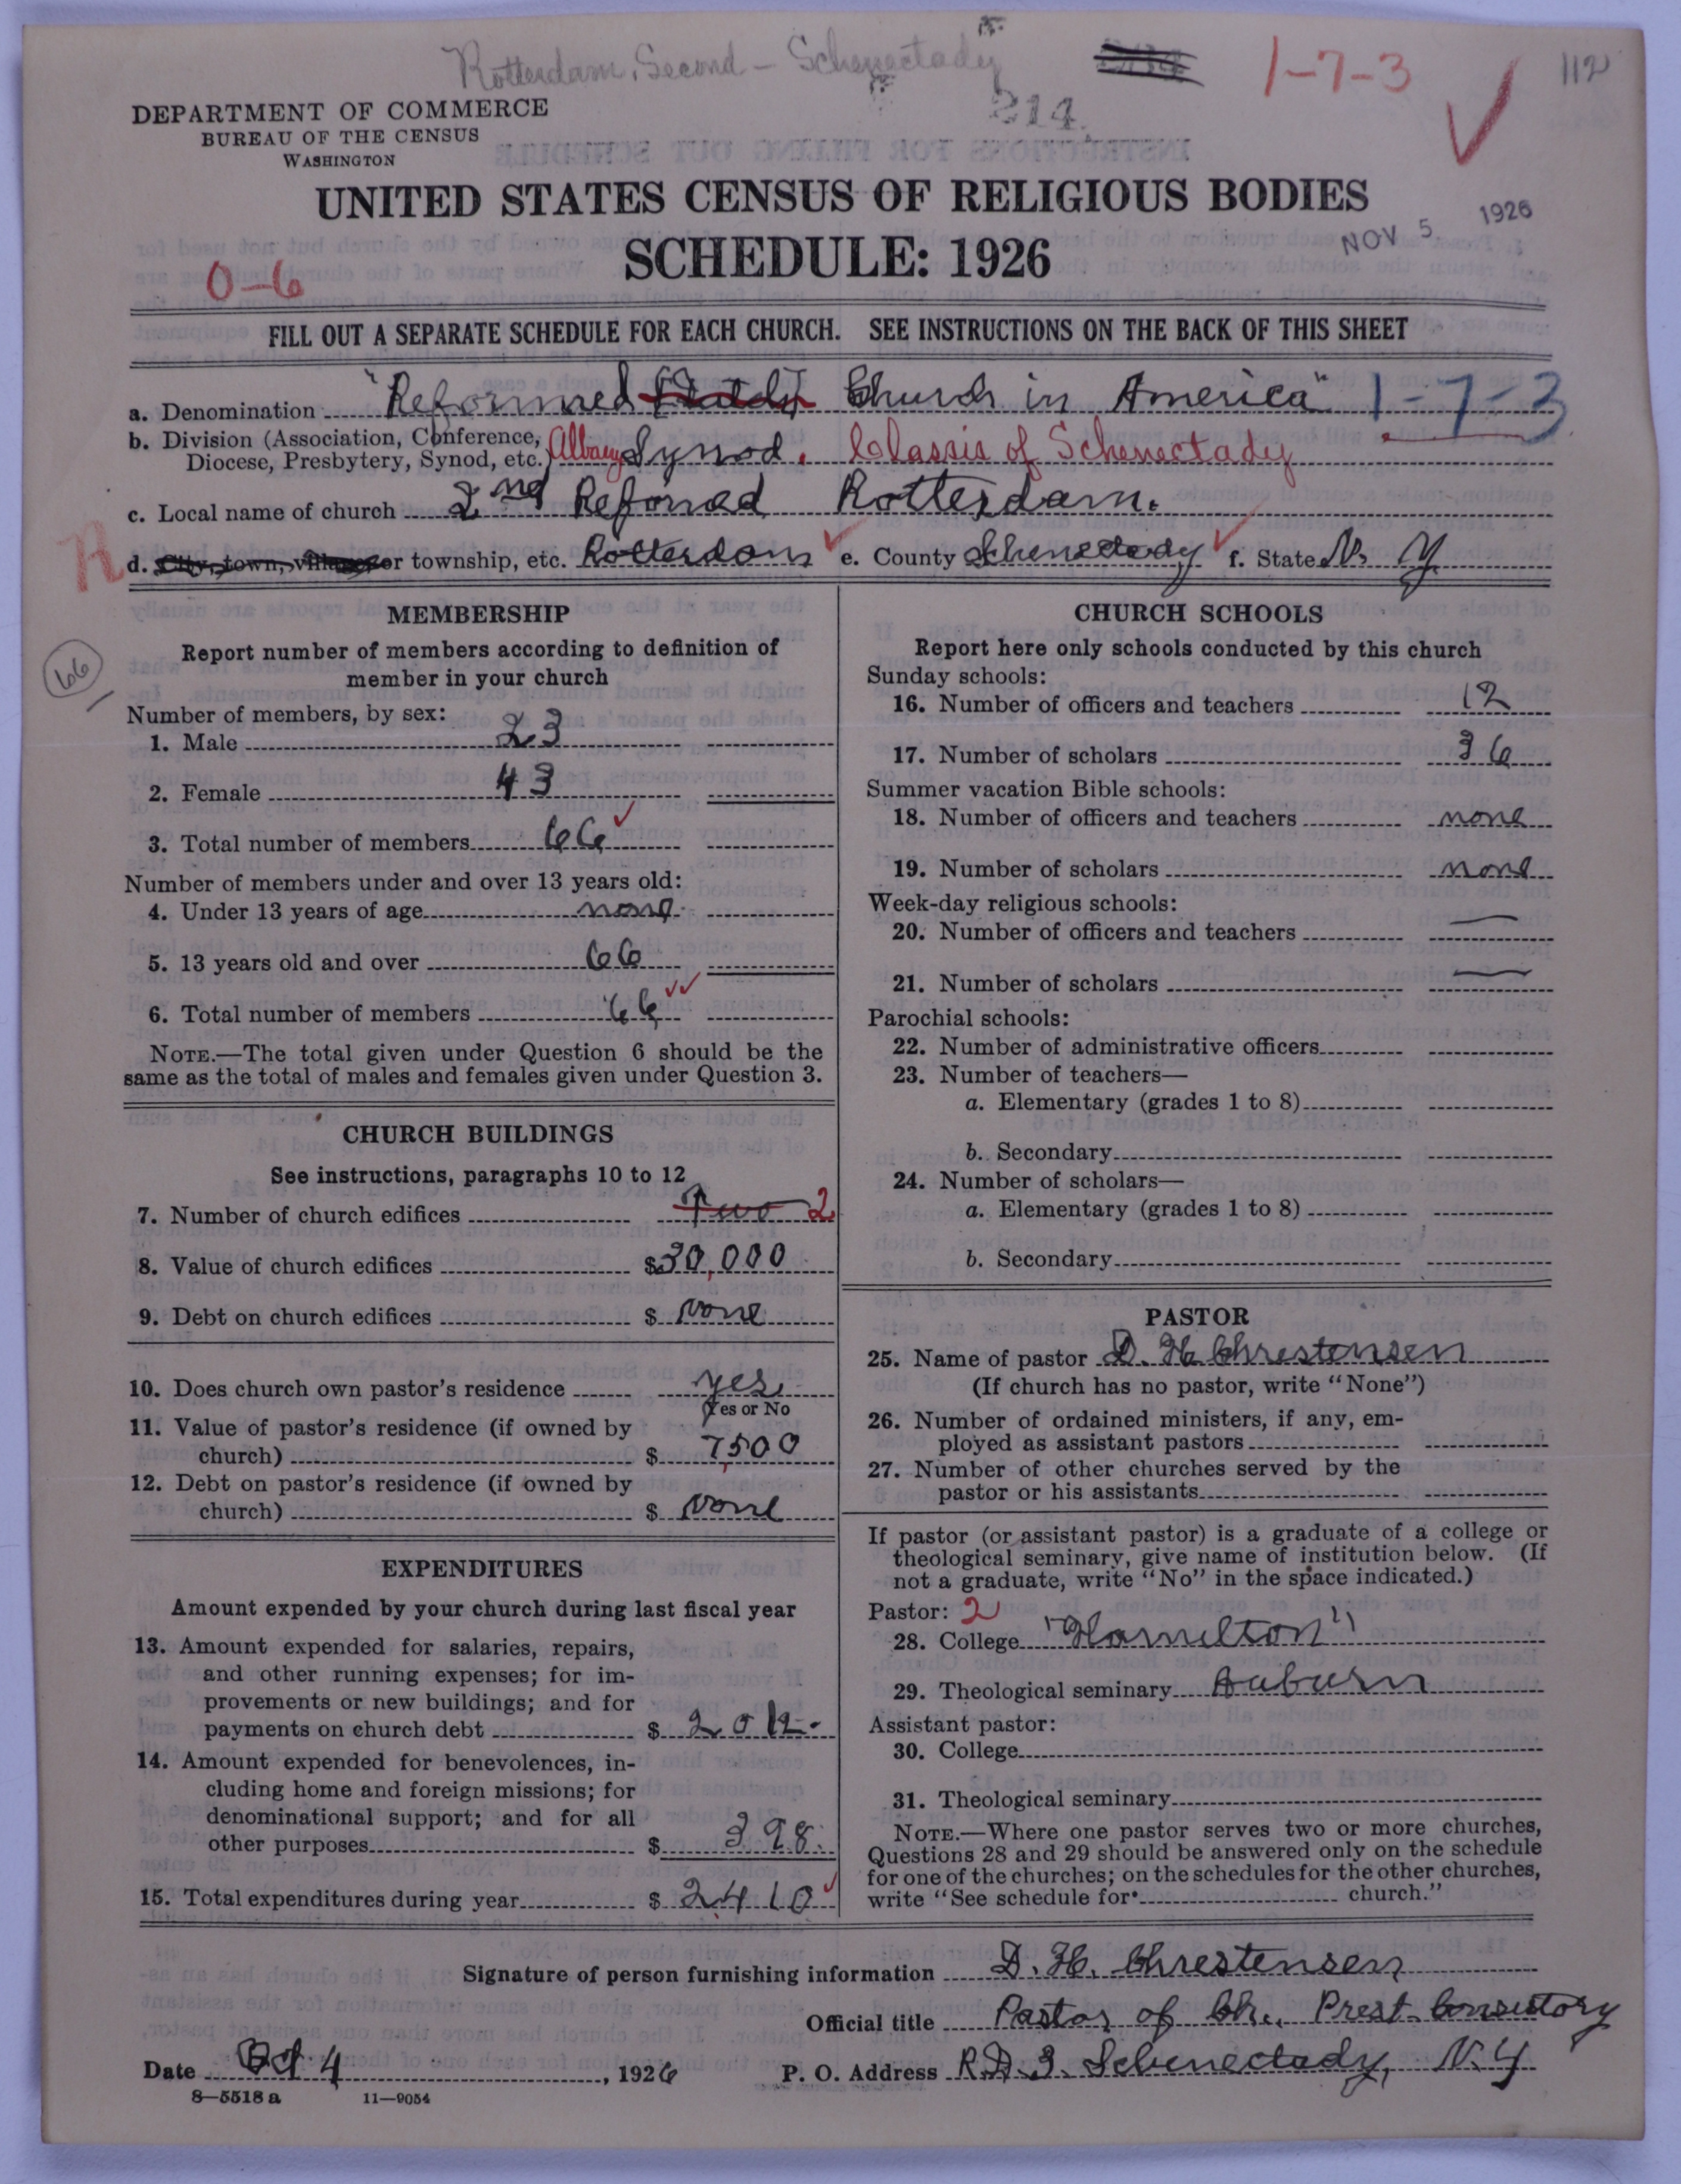 Rotterdam, Second - Schenectady
1-7-3
112
DEPARTMENT OF COMMERCE
BUREAU OF THE CENSUS
WASHINGTON
214
UNITED STATES CENSUS OF RELIGIOUS BODIES
SCHEDULE: 1926
NOV 5 1926
0-6
FILL OUT A SEPARATE SCHEDULE FOR EACH CHURCH. SEE INSTRUCTIONS ON THE BACK OF THIS SHEET
a. Denomination "Reformed (Dutch) Church in America" 1-7-3
b. Division (Association, Conference, Diocese, Presbytery, Synod, etc.) Albany Synod. Classis of Schenectady
c. Local name of church 2nd Reformed Rotterdam.
R
d. City, town, village, or township, etc. Rotterdam e. County Schenectady f. State N. Y.
66
MEMBERSHIP
Report number of members according to definition of
member in your church
Number of members, by sex:
1. Male 23
2. Female 43
3. Total number of members 66
Number of members under and over 13 years old:
4. Under 13 years of age none
5. 13 years old and over 66
6. Total number of members 66
NOTE.—The total given under Question 6 should be the
same as the total of males and females given under Question 3.
CHURCH BUILDINGS
See instructions, paragraphs 10 to 12
7. Number of church edifices Two 2
8. Value of church edifices $30,000
9. Debt on church edifices $ None
10. Does church own pastor's residence yes
(Yes or No
11. Value of pastor's residence (if owned by
church) $ 7,500
12. Debt on pastor's residence (if owned by
church) $ None
EXPENDITURES
Amount expended by your church during last fiscal year
13. Amount expended for salaries, repairs,
and other running expenses; for im-
provements or new buildings; and for
payments on church debt $ 2012-
14. Amount expended for benevolences, in-
cluding home and foreign missions; for
denominational support; and for all
other purposes $ 398.
15. Total expenditures during year $ 2410
CHURCH SCHOOLS
Report here only schools conducted by this church
Sunday schools:
16. Number of officers and teachers 12
17. Number of scholars 36
Summer vacation Bible schools:
18. Number of officers and teachers none
19. Number of scholars none
Week-day religious schools:
20. Number of officers and teachers —
21. Number of scholars —
Parochial schools:
22. Number of administrative officers
23. Number of teachers—
a. Elementary (grades 1 to 8)
b. Secondary
24. Number of scholars—
a. Elementary (grades 1 to 8)
b. Secondary
PASTOR
25. Name of pastor D. H. Chrestensen
(If church has no pastor, write "None")
26. Number of ordained ministers, if any, em-
ployed as assistant pastors
27. Number of other churches served by the
pastor or his assistants
If pastor (or assistant pastor) is a graduate of a college or
theological seminary, give name of institution below. (If
not a graduate, write "No" in the space indicated.)
Pastor: 2
28. College "Hamilton"
29. Theological seminary Auburn
Assistant pastor:
30. College
31. Theological seminary
NOTE.—Where one pastor serves two or more churches,
Questions 28 and 29 should be answered only on the schedule
for one of the churches; on the schedules for the other churches,
write "See schedule for church."
Signature of person furnishing information D. H. Chrestensen
Official title Pastor of Ch., Prest. Consistory
Date Oct 4, 1926 P. O. Address R.D. 3. Schenectady, N. Y
8—5518 a 11—9054